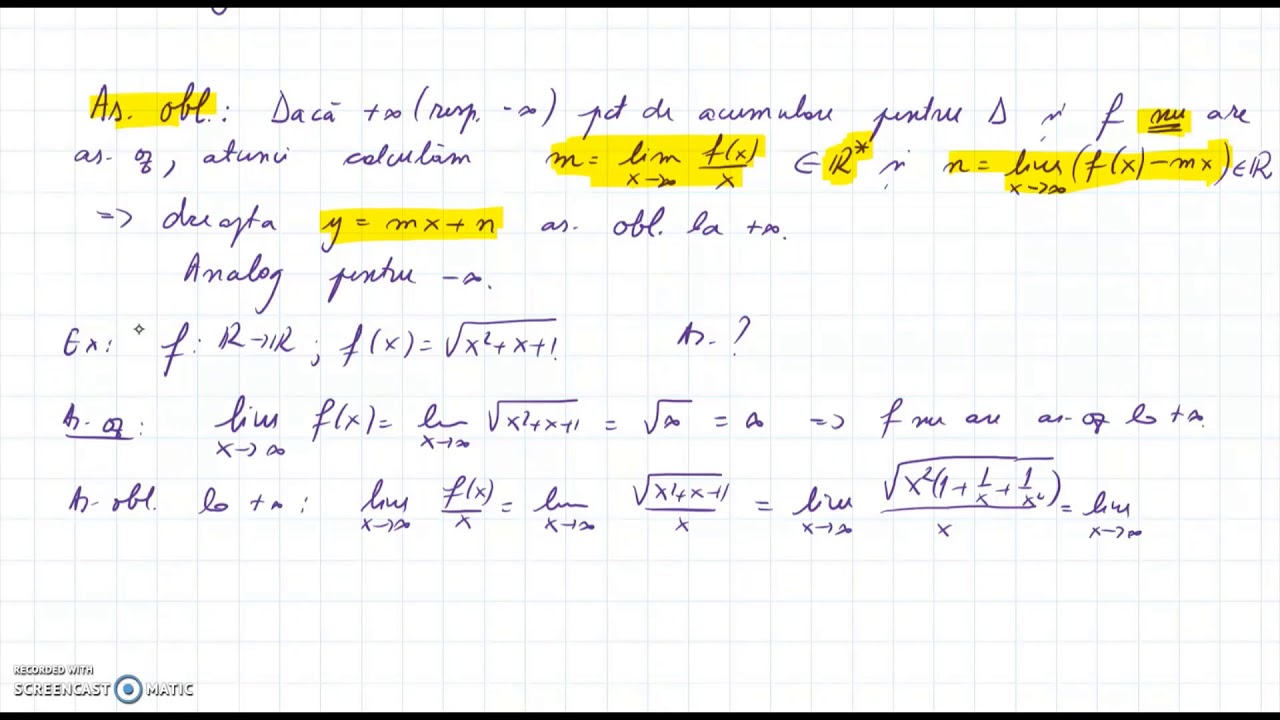 As. obl.: Dacă +∞ (resp. -∞) pct de acumulare pentru Δ și f nu are
as. oz, atunci calculăm m = lim_{x→∞} f(x)/x ∈ ℝ* și n = lim_{x→∞} (f(x) - mx) ∈ ℝ
=> dreapta y = mx + n as. obl. la +∞.
Analog pentru -∞.
Ex: f: ℝ→ℝ ; f(x) = √(x²+x+1) As. ?
As. oz: lim_{x→∞} f(x) = lim_{x→∞} √(x²+x+1) = √∞ = ∞ => f nu are as. oz la +∞.
As. obl. la +∞: lim_{x→∞} f(x)/x = lim_{x→∞} √(x²+x+1)/x = lim_{x→∞} √(x²(1 + 1/x + 1/x²))/x = lim_{x→∞}
RECORDED WITH
SCREENCAST MATIC